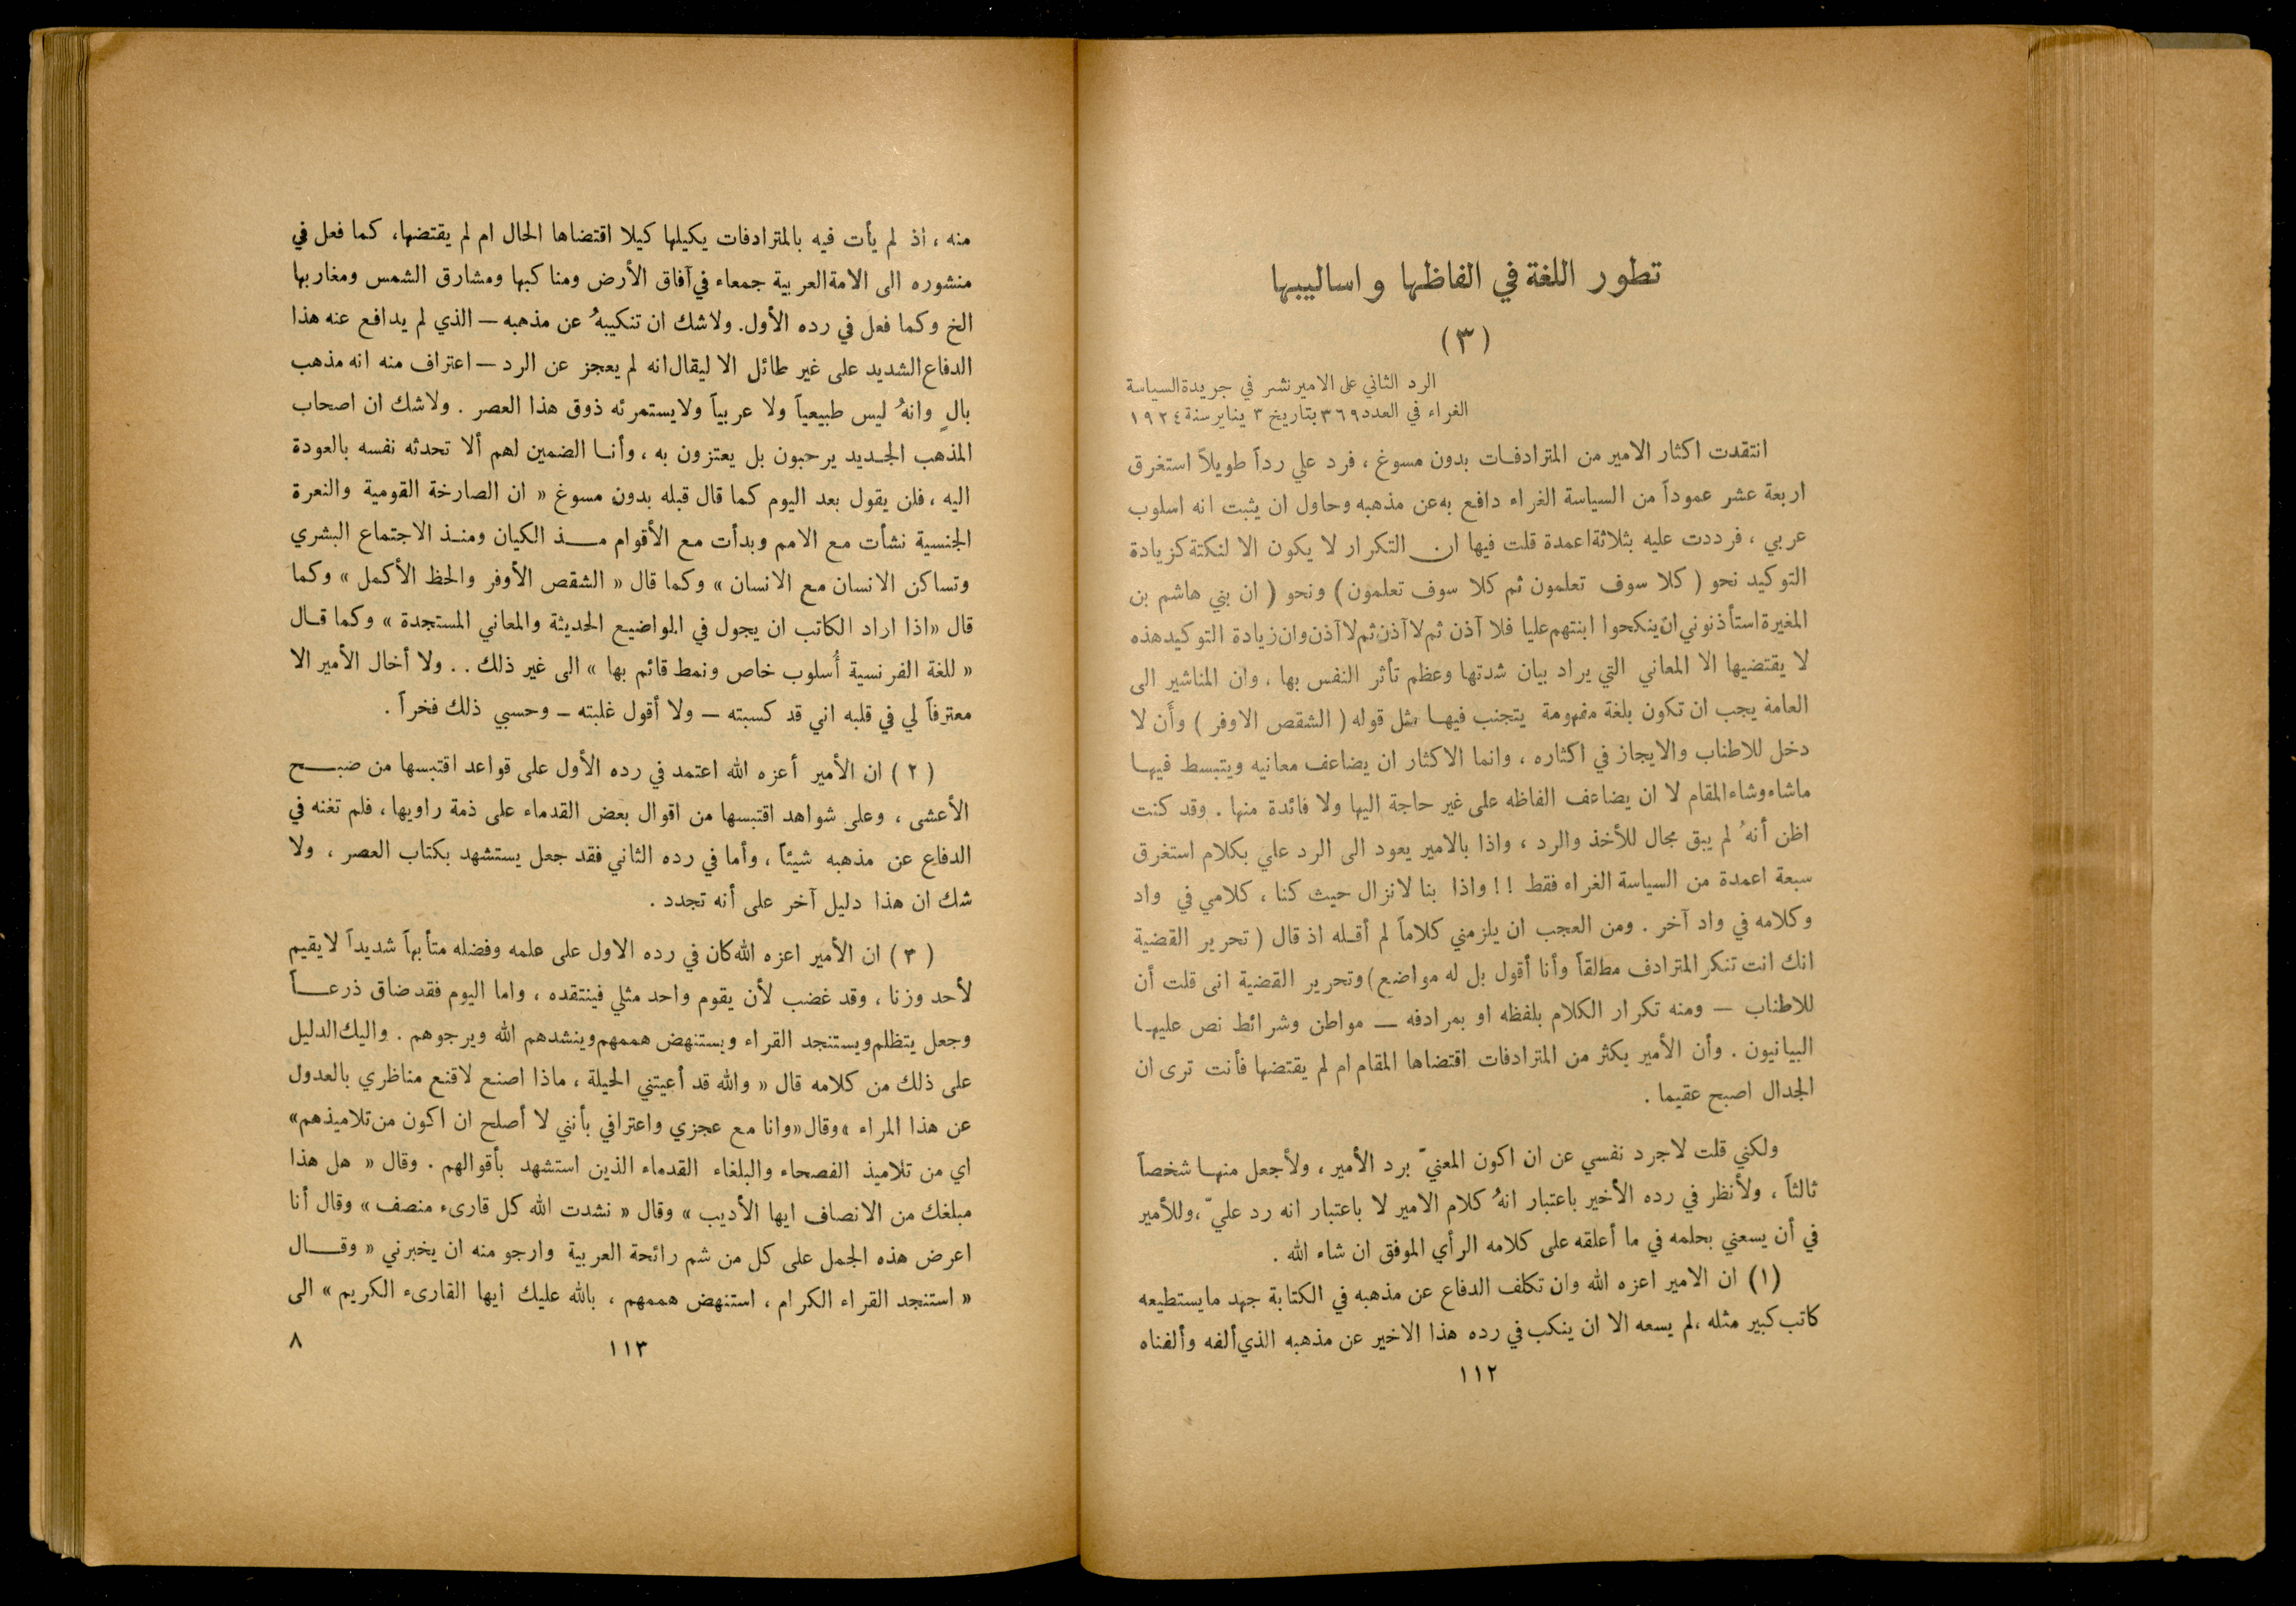 تطور اللغة في الفاظها واساليبها
(٣)
الرد الثاني على الامير نشر في جريدة السياسة
الغراء في العدد ٣٦٩ بتاريخ ٣ يناير سنة ١٩٢٤
انتقدت اكثار الامير من المترادفات بدون مسوغ ، فرد علي رداً طويلاً استغرق
اربعة عشر عموداً من السياسة الغراء دافع به عن مذهبه وحاول ان يثبت انه اسلوب
عربي ، فرددت عليه بثلاثة اعمدة قلت فيها ان التكرار لا يكون الا لنكتة كزيادة
التوكيد نحو ( كلا سوف تعلمون ثم كلا سوف تعلمون ) ونحو ( ان بني هاشم بن
المغيرة استأذنوني ان ينكحوا ابنتهم عليا فلا آذن ثم لا آذن ثم لا آذن وان زيادة التوكيد هذه
لا يقتضيها الا المعاني التي يراد بيان شدتها وعظم تأثر النفس بها ، وان المناشير الى
العامة يجب ان تكون بلغة مفهومة يتجنب فيها مثل قوله ( الشقص الاوفر ) وأن لا
دخل للاطناب والايجاز في اكثاره ، وانما الاكثار ان يضاعف معانيه ويتبسط فيها
ماشاء وشاء المقام لا ان يضاعف الفاظه على غير حاجة اليها ولا فائدة منها . وقد كنت
اظن أنهُ لم يبق مجال للأخذ والرد ، واذا بالامير يعود الى الرد علي بكلام استغرق
سبعة اعمدة من السياسة الغراء فقط !! واذا بنا لانزال حيث كنا ، كلامي في واد
وكلامه في واد آخر . ومن العجب ان يلزمني كلاماً لم أقله اذ قال ( تحرير القضية
انك انت تنكر المترادف مطلقاً وأنا أقول بل له مواضع ) وتحرير القضية انى قلت أن
للاطناب — ومنه تكرار الكلام بلفظه او بمرادفه — مواطن وشرائط نص عليها
البيانيون . وأن الأمير يكثر من المترادفات اقتضاها المقام ام لم يقتضها فأنت ترى ان
الجدال اصبح عقيما .
ولكني قلت لاجرد نفسي عن ان اكون المعنيّ برد الأمير ، ولأجعل منها شخصاً
ثالثاً ، ولأنظر في رده الأخير باعتبار انهُ كلام الامير لا باعتبار انه رد عليّ ، وللأمير
في أن يسعني بحلمه في ما أعلقه على كلامه الرأي الموفق ان شاء الله .
(١) ان الامير اعزه الله وان تكلف الدفاع عن مذهبه في الكتابة جهد مايستطيعه
كاتب كبير مثله ، لم يسعه الا ان ينكب في رده هذا الاخير عن مذهبه الذي ألفه وألفناه
١١٢
منه ، اذ لم يأت فيه بالمترادفات يكيلها كيلا اقتضاها الحال ام لم يقتضها ، كما فعل في
منشوره الى الامة العربية جمعاء في آفاق الأرض ومناكبها ومشارق الشمس ومغاربها
الخ وكما فعل في رده الأول. ولاشك ان تنكيبهُ عن مذهبه — الذي لم يدافع عنه هذا
الدفاع الشديد على غير طائل الا ليقال انه لم يعجز عن الرد — اعتراف منه انه مذهب
بالٍ وانهُ ليس طبيعياً ولا عربياً ولايستمرئه ذوق هذا العصر . ولاشك ان اصحاب
المذهب الجديد يرحبون بل يعتزون به ، وأنا الضمين لهم ألا تحدثه نفسه بالعودة
اليه ، فلن يقول بعد اليوم كما قال قبله بدون مسوغ « ان الصارخة القومية والنعرة
الجنسية نشأت مع الامم وبدأت مع الأقوام مذ الكيان ومنذ الاجتماع البشري
وتساكن الانسان مع الانسان » وكما قال « الشقص الأوفر والحظ الأكمل » وكما
قال « اذا اراد الكاتب ان يجول في المواضيع الحديثة والمعاني المستجدة » وكما قال
« للغة الفرنسية أُسلوب خاص ونمط قائم بها » الى غير ذلك . . ولا أخال الأمير الا
معترفاً لي في قلبه اني قد كسبته — ولا أقول غلبته — وحسبي ذلك فخراً .
( ٢ ) ان الأمير أعزه الله اعتمد في رده الأول على قواعد اقتبسها من صبح
الأعشى ، وعلى شواهد اقتبسها من اقوال بعض القدماء على ذمة راويها ، فلم تغنه في
الدفاع عن مذهبه شيئاً ، وأما في رده الثاني فقد جعل يستشهد بكتاب العصر ، ولا
شك ان هذا دليل آخر على أنه تجدد .
( ٣ ) ان الأمير اعزه الله كان في رده الاول على علمه وفضله متأبهاً شديداً لايقيم
لأحد وزنا ، وقد غضب لأن يقوم واحد مثلي فينتقده ، واما اليوم فقد ضاق ذرعاً
وجعل يتظلم ويستنجد القراء ويستنهض هممهم وينشدهم الله ويرجوهم . واليك الدليل
على ذلك من كلامه قال « والله قد أعيتني الحيلة ، ماذا اصنع لاقنع مناظري بالعدول
عن هذا المراء » وقال « وانا مع عجزي واعترافي بأنني لا أصلح ان اكون من تلاميذهم »
اي من تلاميذ الفصحاء والبلغاء القدماء الذين استشهد بأقوالهم . وقال « هل هذا
مبلغك من الانصاف ايها الأديب » وقال « نشدت الله كل قارىء منصف » وقال أنا
اعرض هذه الجمل على كل من شم رائحة العربية وارجو منه ان يخبرني « وقال
« استنجد القراء الكرام ، استنهض هممهم ، بالله عليك ايها القارىء الكريم » الى
١١٣
٨